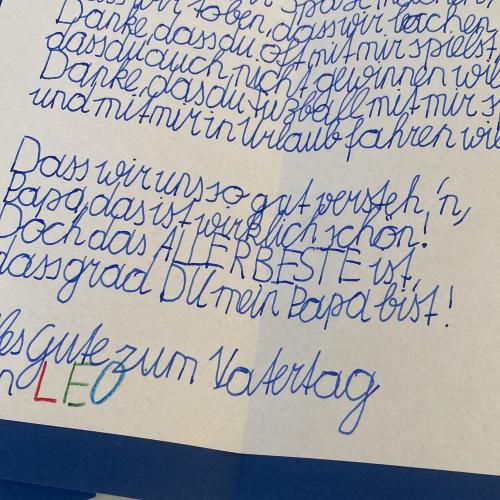 wir toben, Spaß
Danke, dass du, dass wir lachen
dass du oft mit mir spielst
dass du auch nicht gewinnen
Danke, dasdu Fußball mit mir
und mit mir in Urlaub fahren
Dass wir uns so gut versteh'n,
Papa, das ist wirklich schön!
Doch das ALLERBESTE ist,
dass grad DU mein Papa bist!
Gute zum Vatertag
LEO